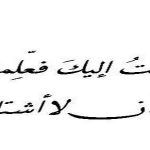 تُ إليكَ فعلّم
ن لا أشتا